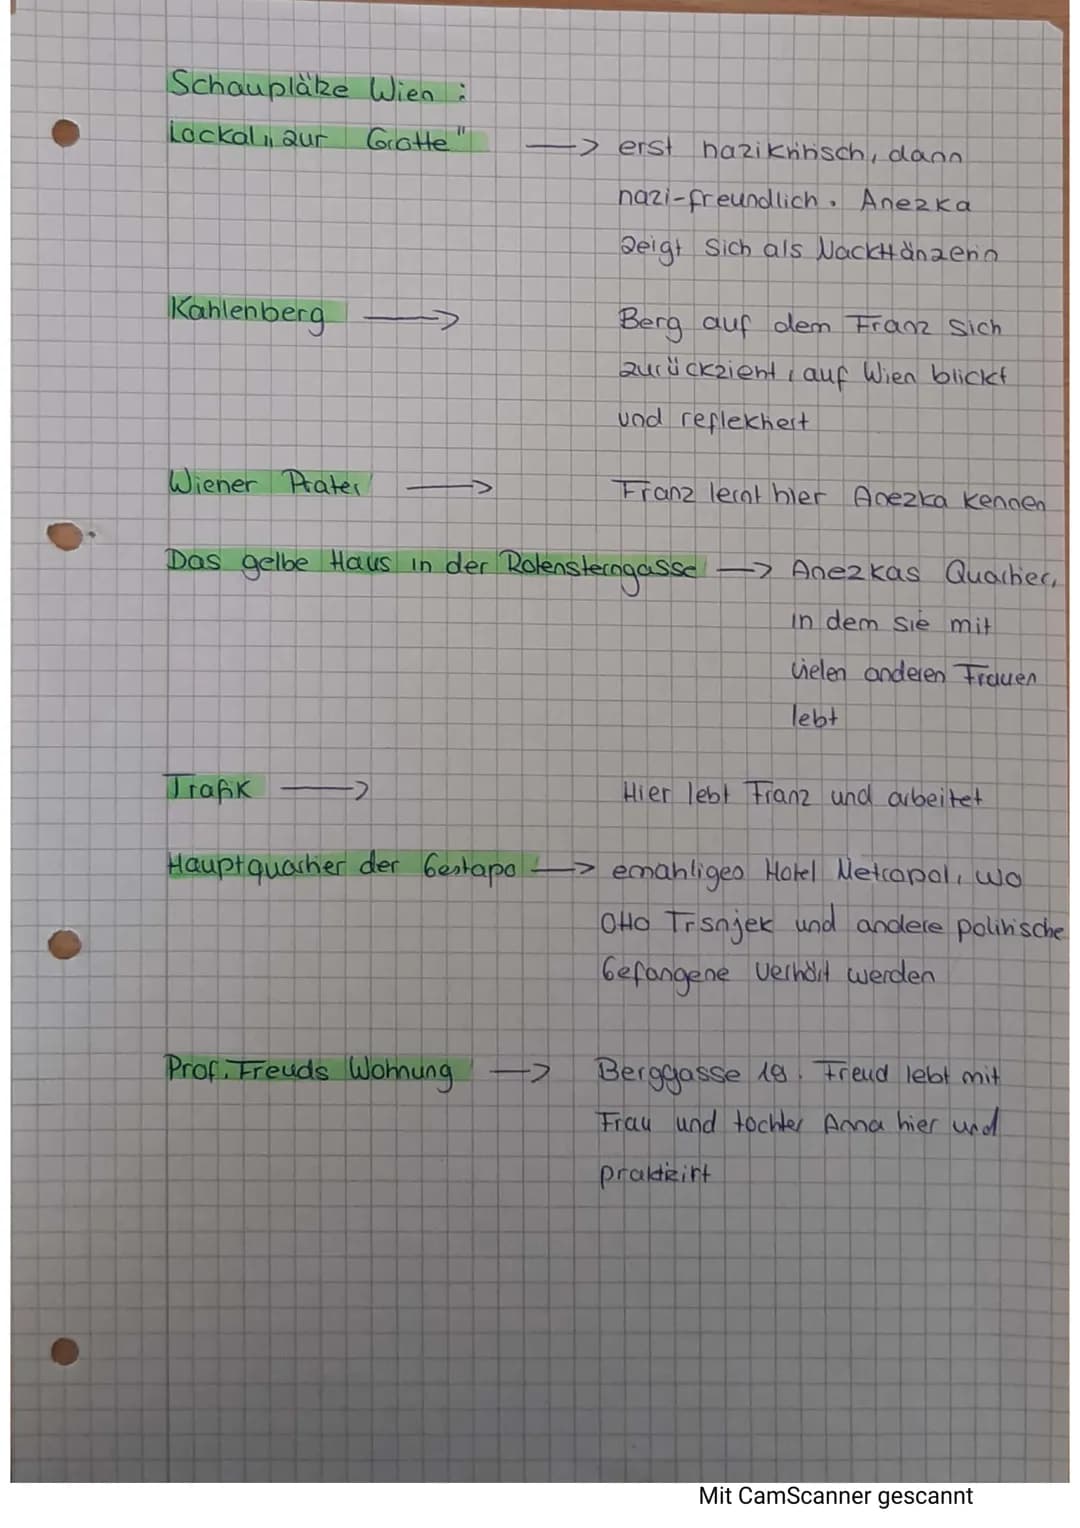 Schauplätze Wien :
Lockal „zur Grotte" → erst nazikritisch, dann
nazi-freundlich. Anezka
zeigt sich als Nackttänzerin
Kahlenberg → Berg auf dem Franz sich
zurückzieht, auf Wien blickt
und reflektiert
Wiener Prater → Franz lernt hier Anezka kennen
Das gelbe Haus in der Rotensterngasse → Anezkas Quartier,
in dem sie mit
vielen anderen Frauen
lebt
Trafik → Hier lebt Franz und arbeitet
Hauptquartier der Gestapo → emahliges Hotel Metropol, wo
Otto Trsnjek und andere politische
Gefangene verhört werden
Prof. Freuds Wohnung → Berggasse 19. Freud lebt mit
Frau und tochter Anna hier und
praktizirt
Mit CamScanner gescannt